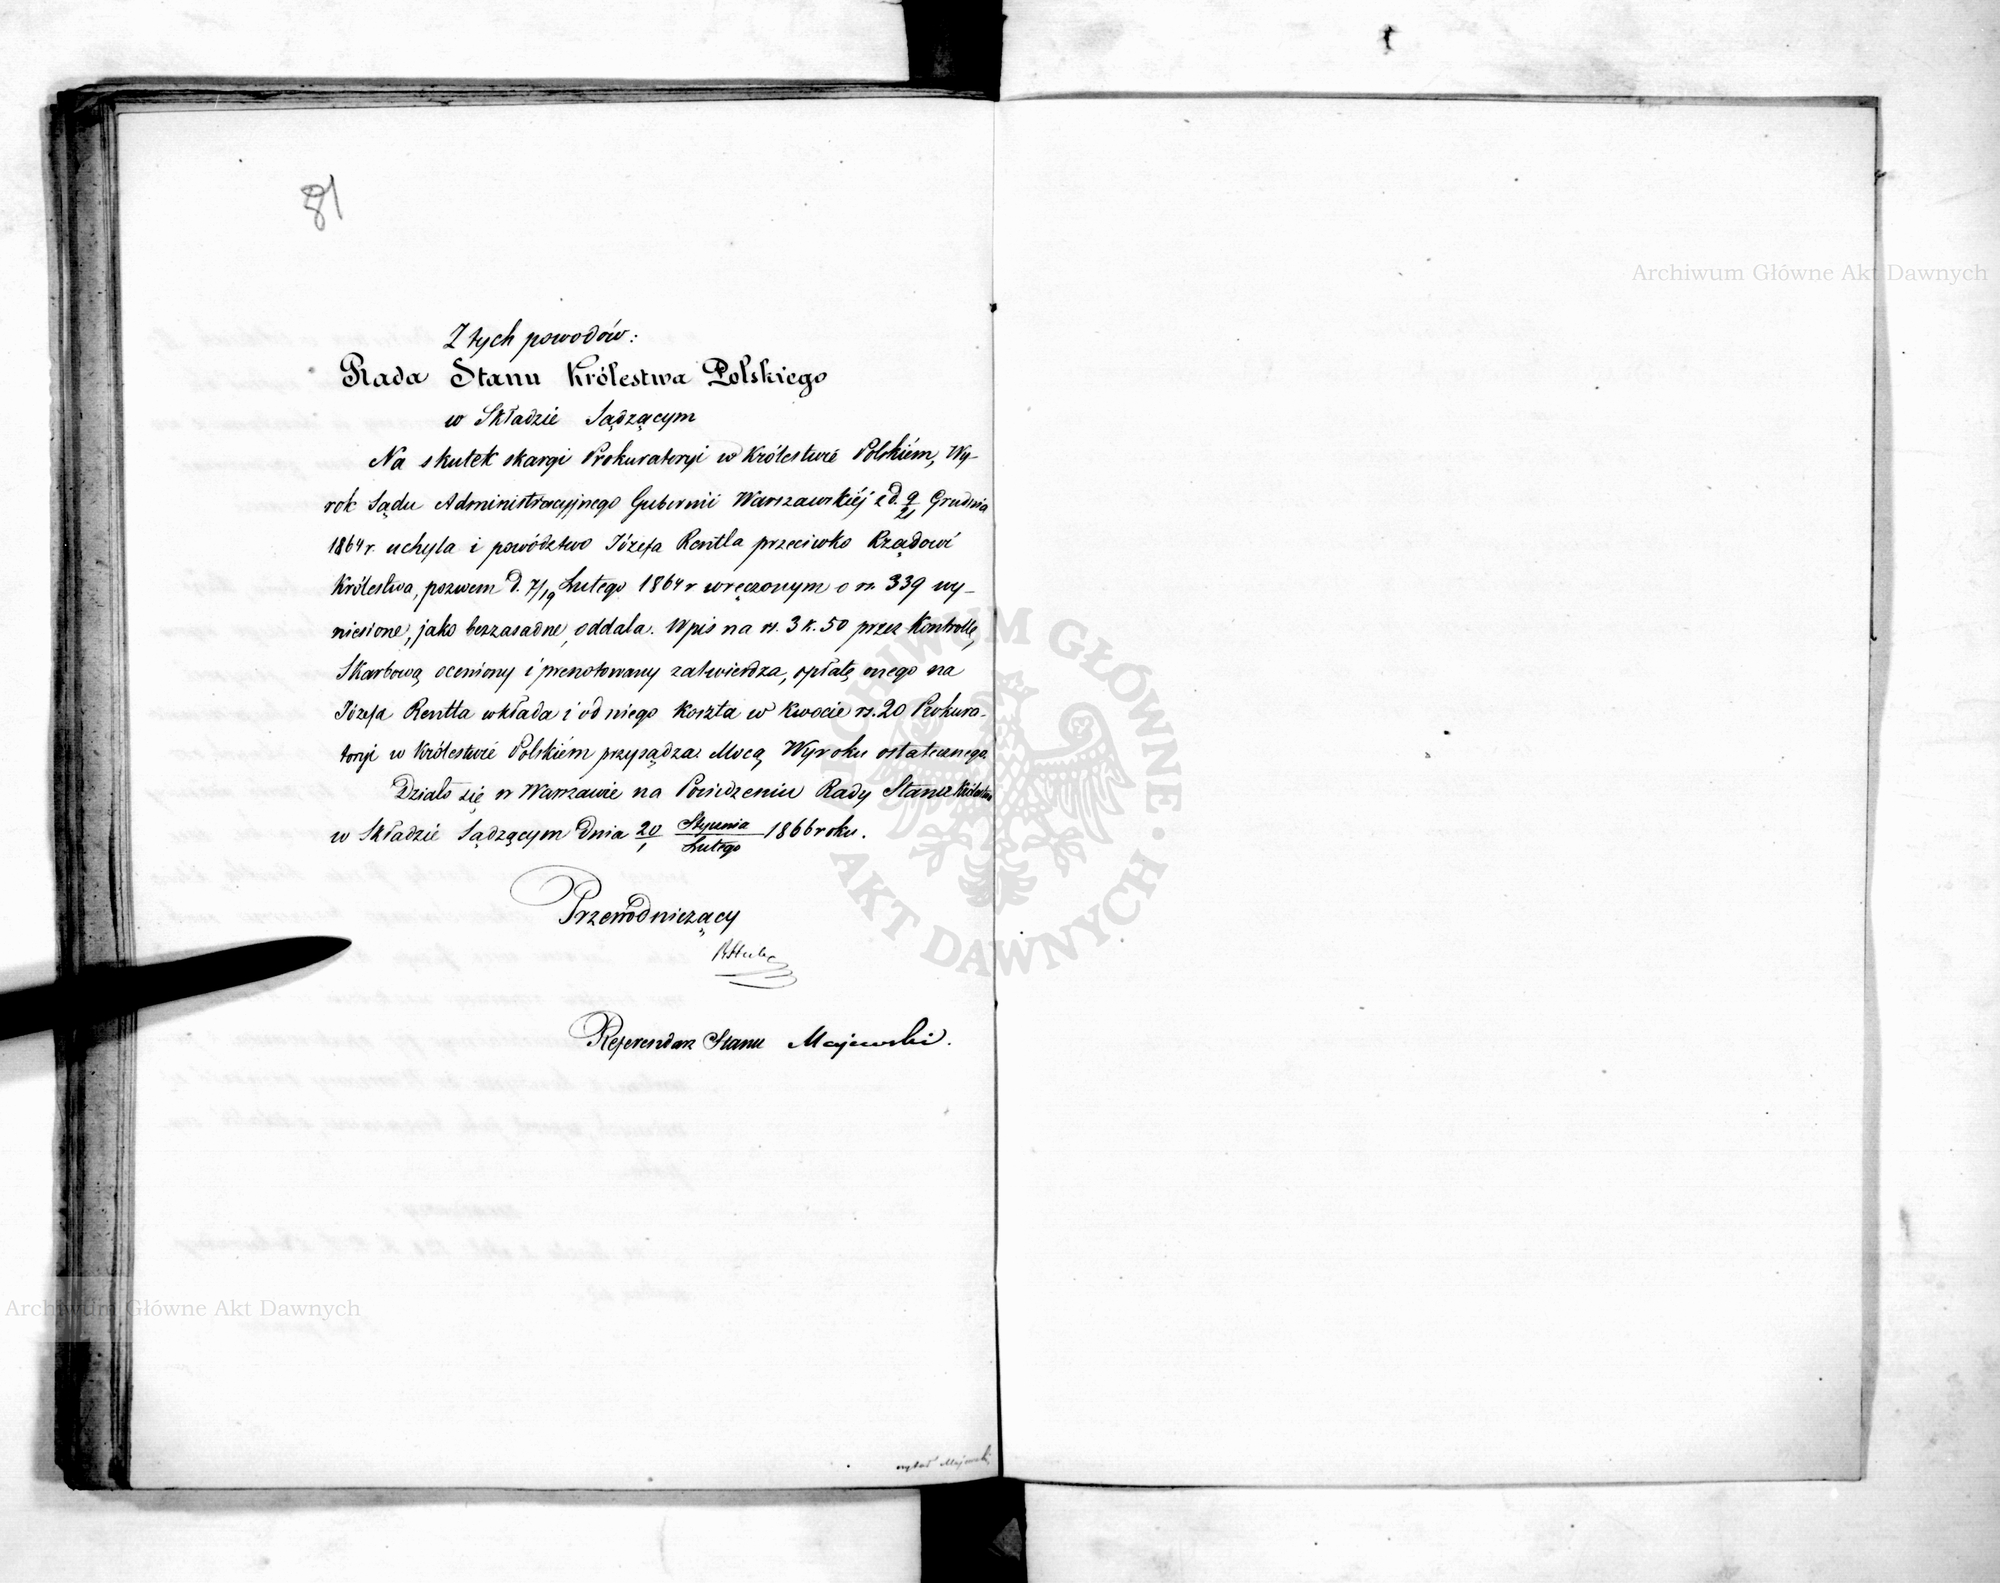 81
Z tych powodów:
Rada Stanu Królestwa Polskiego
w Składzie Sądzącym
Na skutek skargi Prokuratoryi w Królestwie Polskiém, Wy-
rok Sądu Administracyjnego Gubernii Warszawskiéj z d. 9/21 Grudnia
1864 r. uchyla i powództwo Józefa Rentla przeciwko Rządowi
Królestwa, pozwem d. 7/19 Lutego 1864 r wręczonym o rs. 339 wy-
niesione, jako bezzasadne, oddala. Wpis na rs. 3 k. 50 przez Kontrollę
Skarbową oceniony i prenotowany zatwierdza, opłatę onego na
Józefa Rentla wkłada i od niego koszta w kwocie rs. 20 Prokura-
toryi w Królestwie Polskiém przysądza. Mocą Wyroku ostatecznego.
Działo się w Warszawie na Posiedzeniu Rady Stanu Królestwa
w Składzie Sądzącym dnia 20/1 Stycznia/Lutego 1866 roku.
Przewodniczący
RHube
Referendarz Stanu Majewski.
czytał Majewski
Archiwum Główne Akt Dawnych
Archiwum Główne Akt Dawnych
ARCHIWUM GŁÓWNE AKT DAWNYCH